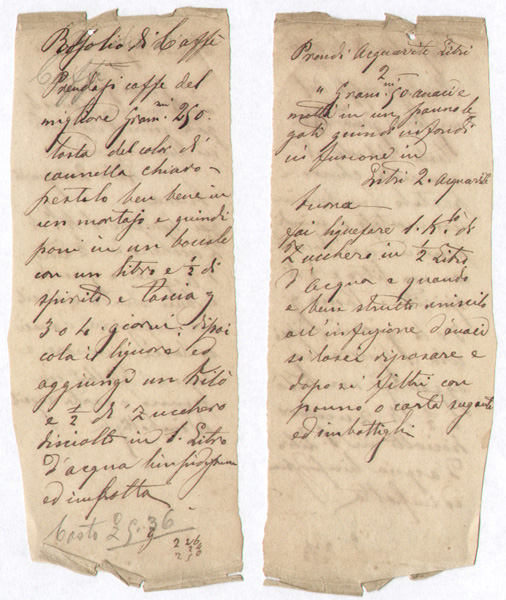 Rosolio di Caffè
Prendasi caffe del
migliore Gram.mi 250.
tosta del color di
cannella chiaro
pestelo ben bene in
un mortajo e quindi
poni in un boccale
con un litro e ½ di
spirito e lascia p
3 o 4. giorni. dipoi
cola il liquore ed
aggiungi un Kilò
e ½ di Zucchero
disciolto in 1. Litro
d'acqua
ed imbotta
Costo
2 26
Prendi Acquavite Litri
2
" Gram.mi 50 anaci e
metti in un panno le
gati quindi
in fusione in
Litri 2. Acquavite
buona
fai liquefare 1. K.lo di
Zucchero in ½ Litro
d'acqua e quando
e ben strutto uniscilo
all'infusione d'anaci
si lasci riposare e
dopo si filtri con
panno o carta sugante
ed imbottigli